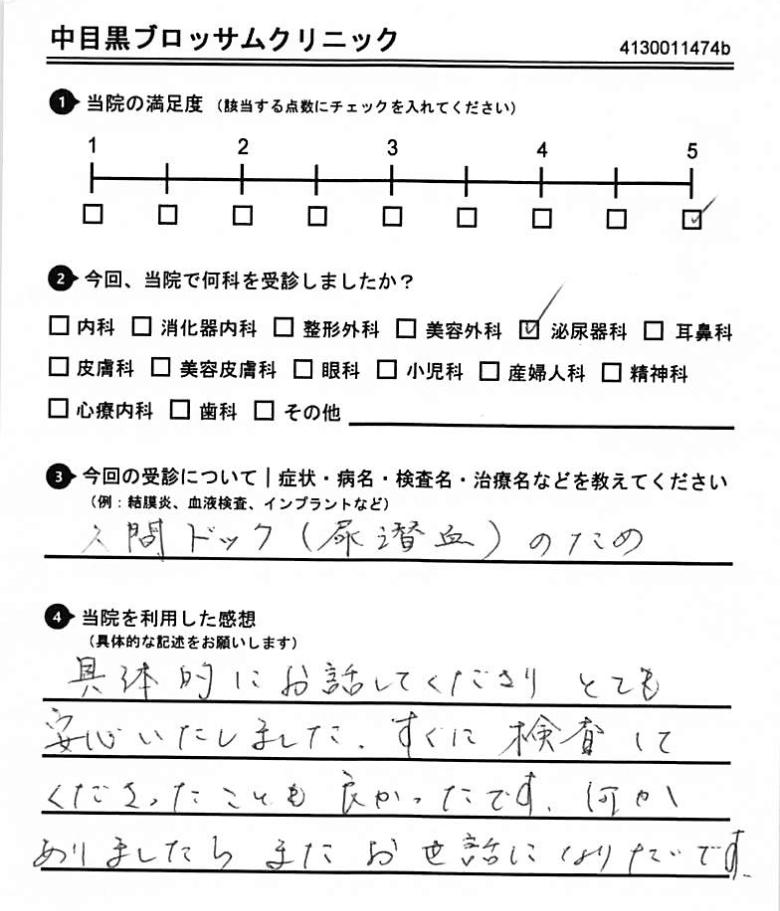 中目黒ブロッサムクリニック
4130011474b
1 当院の満足度 (該当する点数にチェックを入れてください)
1 2 3 4 5
□ □ □ □ □ □ □ □ ☑
2 今回、当院で何科を受診しましたか?
□ 内科 □ 消化器内科 □ 整形外科 □ 美容外科 ☑ 泌尿器科 □ 耳鼻科
□ 皮膚科 □ 美容皮膚科 □ 眼科 □ 小児科 □ 産婦人科 □ 精神科
□ 心療内科 □ 歯科 □ その他
3 今回の受診について|症状・病名・検査名・治療名などを教えてください
(例:結膜炎、血液検査、インプラントなど)
人間ドック(尿潜血)のため
4 当院を利用した感想
(具体的な記述をお願いします)
具体的にお話してくださり とても
安心いたしました。すぐに検査して
くださったことも良かったです。何か
ありましたら またお世話になりたいです。